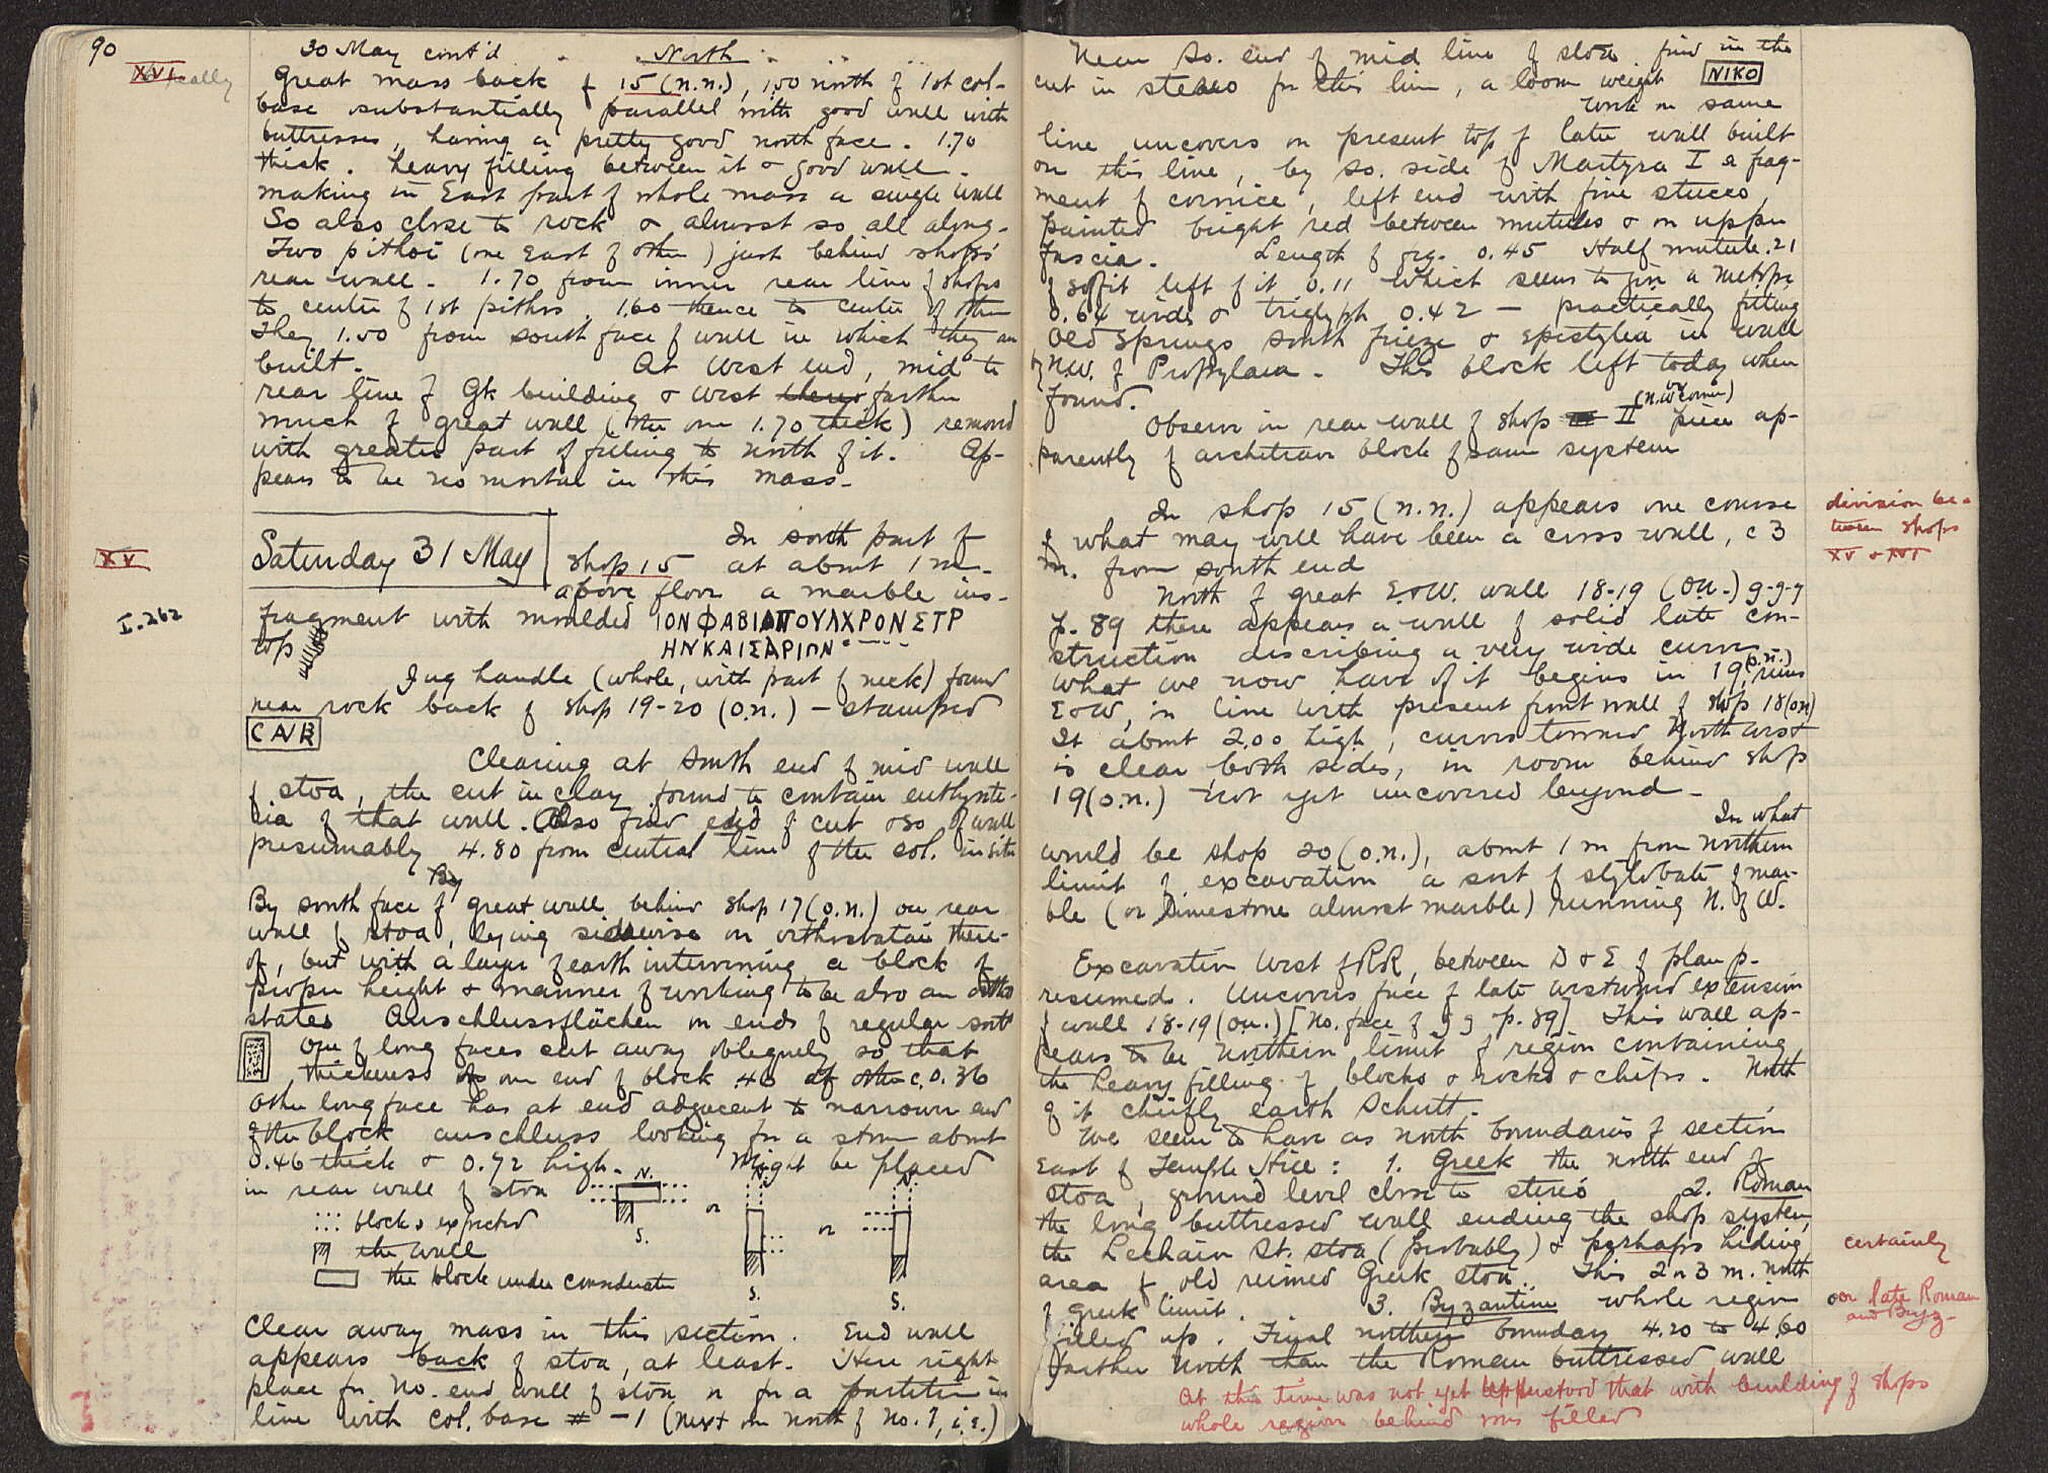 90
30 May cont'd . . North . . .
XVI
really
Great mass back of 15 (n.n.), 1.50 north of 1st col-
base substantially parallel with good wall with
buttresses, having a pretty good north face. 1.70
thick. heavy filling between it & good wall.
making in East part of whole mass a single wall
So also close to rock & almost so all along.
Two pithoi (one East of other) just behind shops'
rear wall. 1.70 from inner rear line of shops
to center of 1st pithos. 1.60 thence to center of other
They 1.50 from south face of wall in which they are
built. At West end, mid to
rear line of Gk building & West farther
much of great wall (the one 1.70 thick) removed
with greater part of filling to north of it. Ap-
pears to be no mortar in this mass.
Saturday 31 May
XV
In south part of
shop 15 at about 1 m.
above floor a marble ins.
I.262
fragment with moulded ΙΟΝΦΑΒΙΑΠΟΥΛΧΡΟΝΣΤΡ
top ΗΝΚΑΙΣΑΡΙΩΝ
Jug handle (whole, with part of neck) found
near rock back of shop 19-20 (o.n.) — stamped
Clearing at South end of mid wall
of stoa, the cut in clay found to contain euthynte-
ria of that wall. Also find end of cut & so of wall
presumably 4.80 from central line of the col. in situ
By
By south face of great wall behind shop 17 (o.n.) on rear
wall of stoa, lying sidewise on orthostatai there-
of, but with a layer of earth intervening a block of
proper height & manner of working to be also an ortho
states Anschlussflächen on ends of regular sort
One of long faces cut away obliquely so that
thickness of one end of block .46 of other c. 0.36
Other long face has at end adjacent to narrower end
of the block anschluss looking for a stone about
0.46 thick & 0.72 high. Might be placed
in rear wall of stoa
N. N. N.
or or
blocks expected
the wall
the block under consideration
S. S. S.
Clear away mass in this section. End wall
appears back of stoa, at least. Here right
place for No. end wall of stoa or for a partition in
line with col. base # -1 (next on north of No. 1, i.e.)
Near So. end of mid line of stoa find in the
cut in stereo for this line, a loom weight NIKO
Work on same
line uncovers on present top of late wall built
on this line, by so. side of Martyra I a frag-
ment of cornice, left end with fine stucco,
painted bright red between mutules & on upper
fascia. Length of frg. 0.45 Half mutule .21
of soffit left of it 0.11 which seems to give a metope
0.64 wide & triglyph 0.42 — practically fitting
Old Springs south frieze & epistylia in wall
by N.W. of Propylaea. This block left today where
found.
(N.W corner)
Observe in rear wall of shop II piece ap-
parently of architrave block of same system
In shop 15 (n.n.) appears one course
of what may well have been a cross wall, c 3
m. from south end
division be-
tween shops
XV & XVI
North of great E.&W. wall 18-19 (o.n.) g-g-g
p. 89 there appears a wall of solid late con-
struction describing a very wide curve
What we now have of it begins in 19 (o.n.), runs
E&W, in line with present front wall of shop 18 (o.n.)
It about 2.00 high, curves toward North West
is clear both sides, in room behind shop
19 (o.n.) not yet uncovered beyond.
In what
would be shop 20 (o.n.), about 1 m from northern
limit of excavation a sort of stylobate of mar-
ble (or limestone almost marble) running N. of W.
Excavation West of RR, between D & E of plan p.
resumed. Uncovers face of late westward extension
of wall 18-19 (o.n.) [No. face of g g p. 89] This wall ap-
pears to be northern limit of region containing
the heavy filling of blocks & rocks & chips. North
of it chiefly earth Schutt.
We seem to have as north boundaries of section
East of Temple Hill: 1. Greek the north end of
stoa, ground level close to stereo 2. Roman
the long buttressed wall ending the shop system,
the Lechaion St. stoa (probably) & perhaps hiding
area of old ruined Greek stoa. This 2 or 3 m. north
of Greek limit. 3. Byzantine whole region
filled up. Final northern boundary 4.20 to 4.60
farther north than the Roman buttressed wall
certainly
or late Roman
and Byz.
At this time was not yet understood that with building of shops
whole region behind was filled